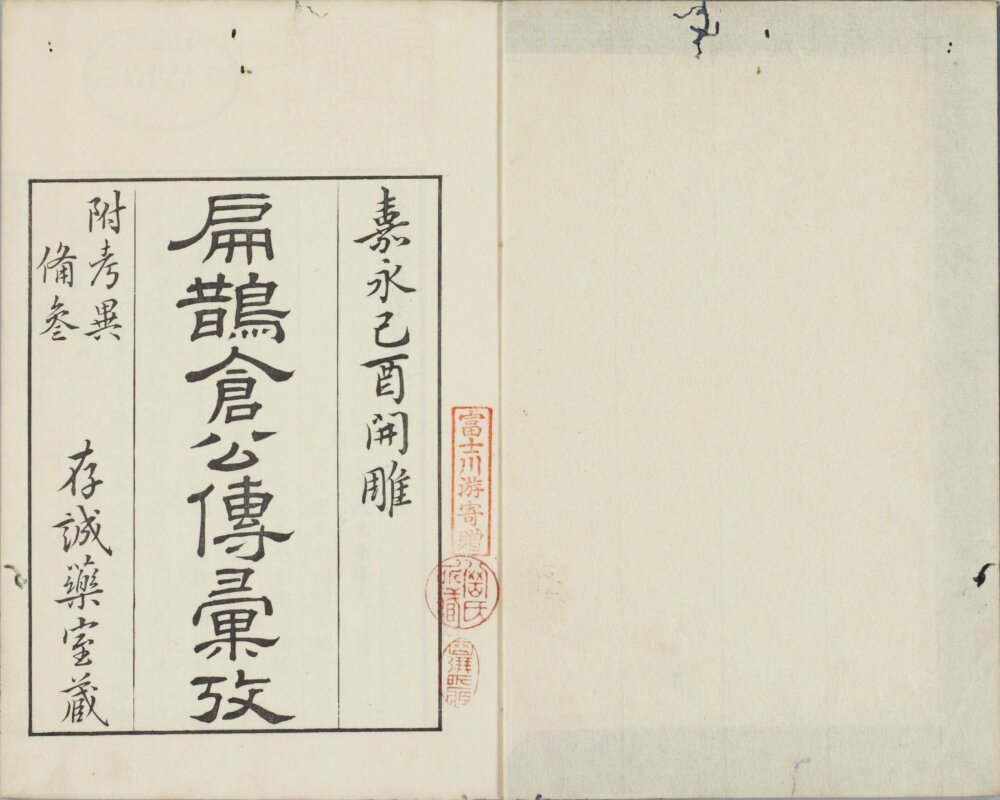 嘉永己酉開雕
扁鵲倉公傳彙攷
附考異
備叅
存誠藥室藏
富士川游寄贈